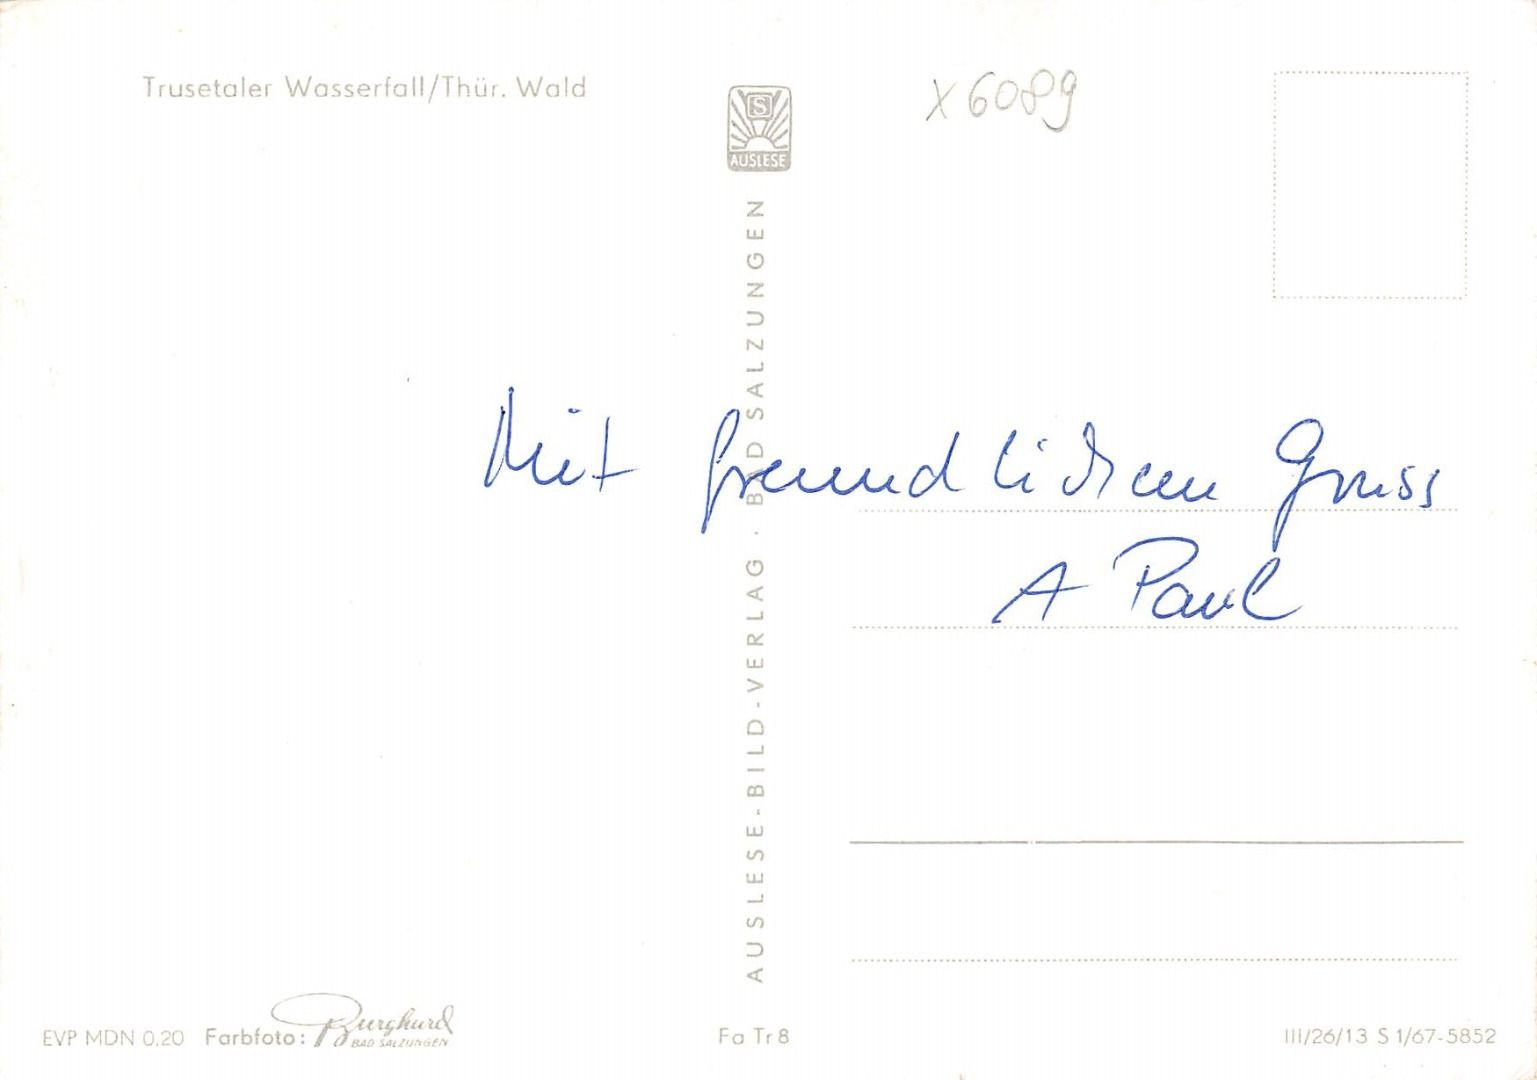 Trusetaler Wasserfall/Thür. Wald
S
AUSLESE
X6089
AUSLESE-BILD-VERLAG · BAD SALZUNGEN
Mit freundlichem Gruss
A Paul
EVP MDN 0,20 Farbfoto: Burghard
BAD SALZUNGEN
Fa Tr 8
III/26/13 S 1/67-5852